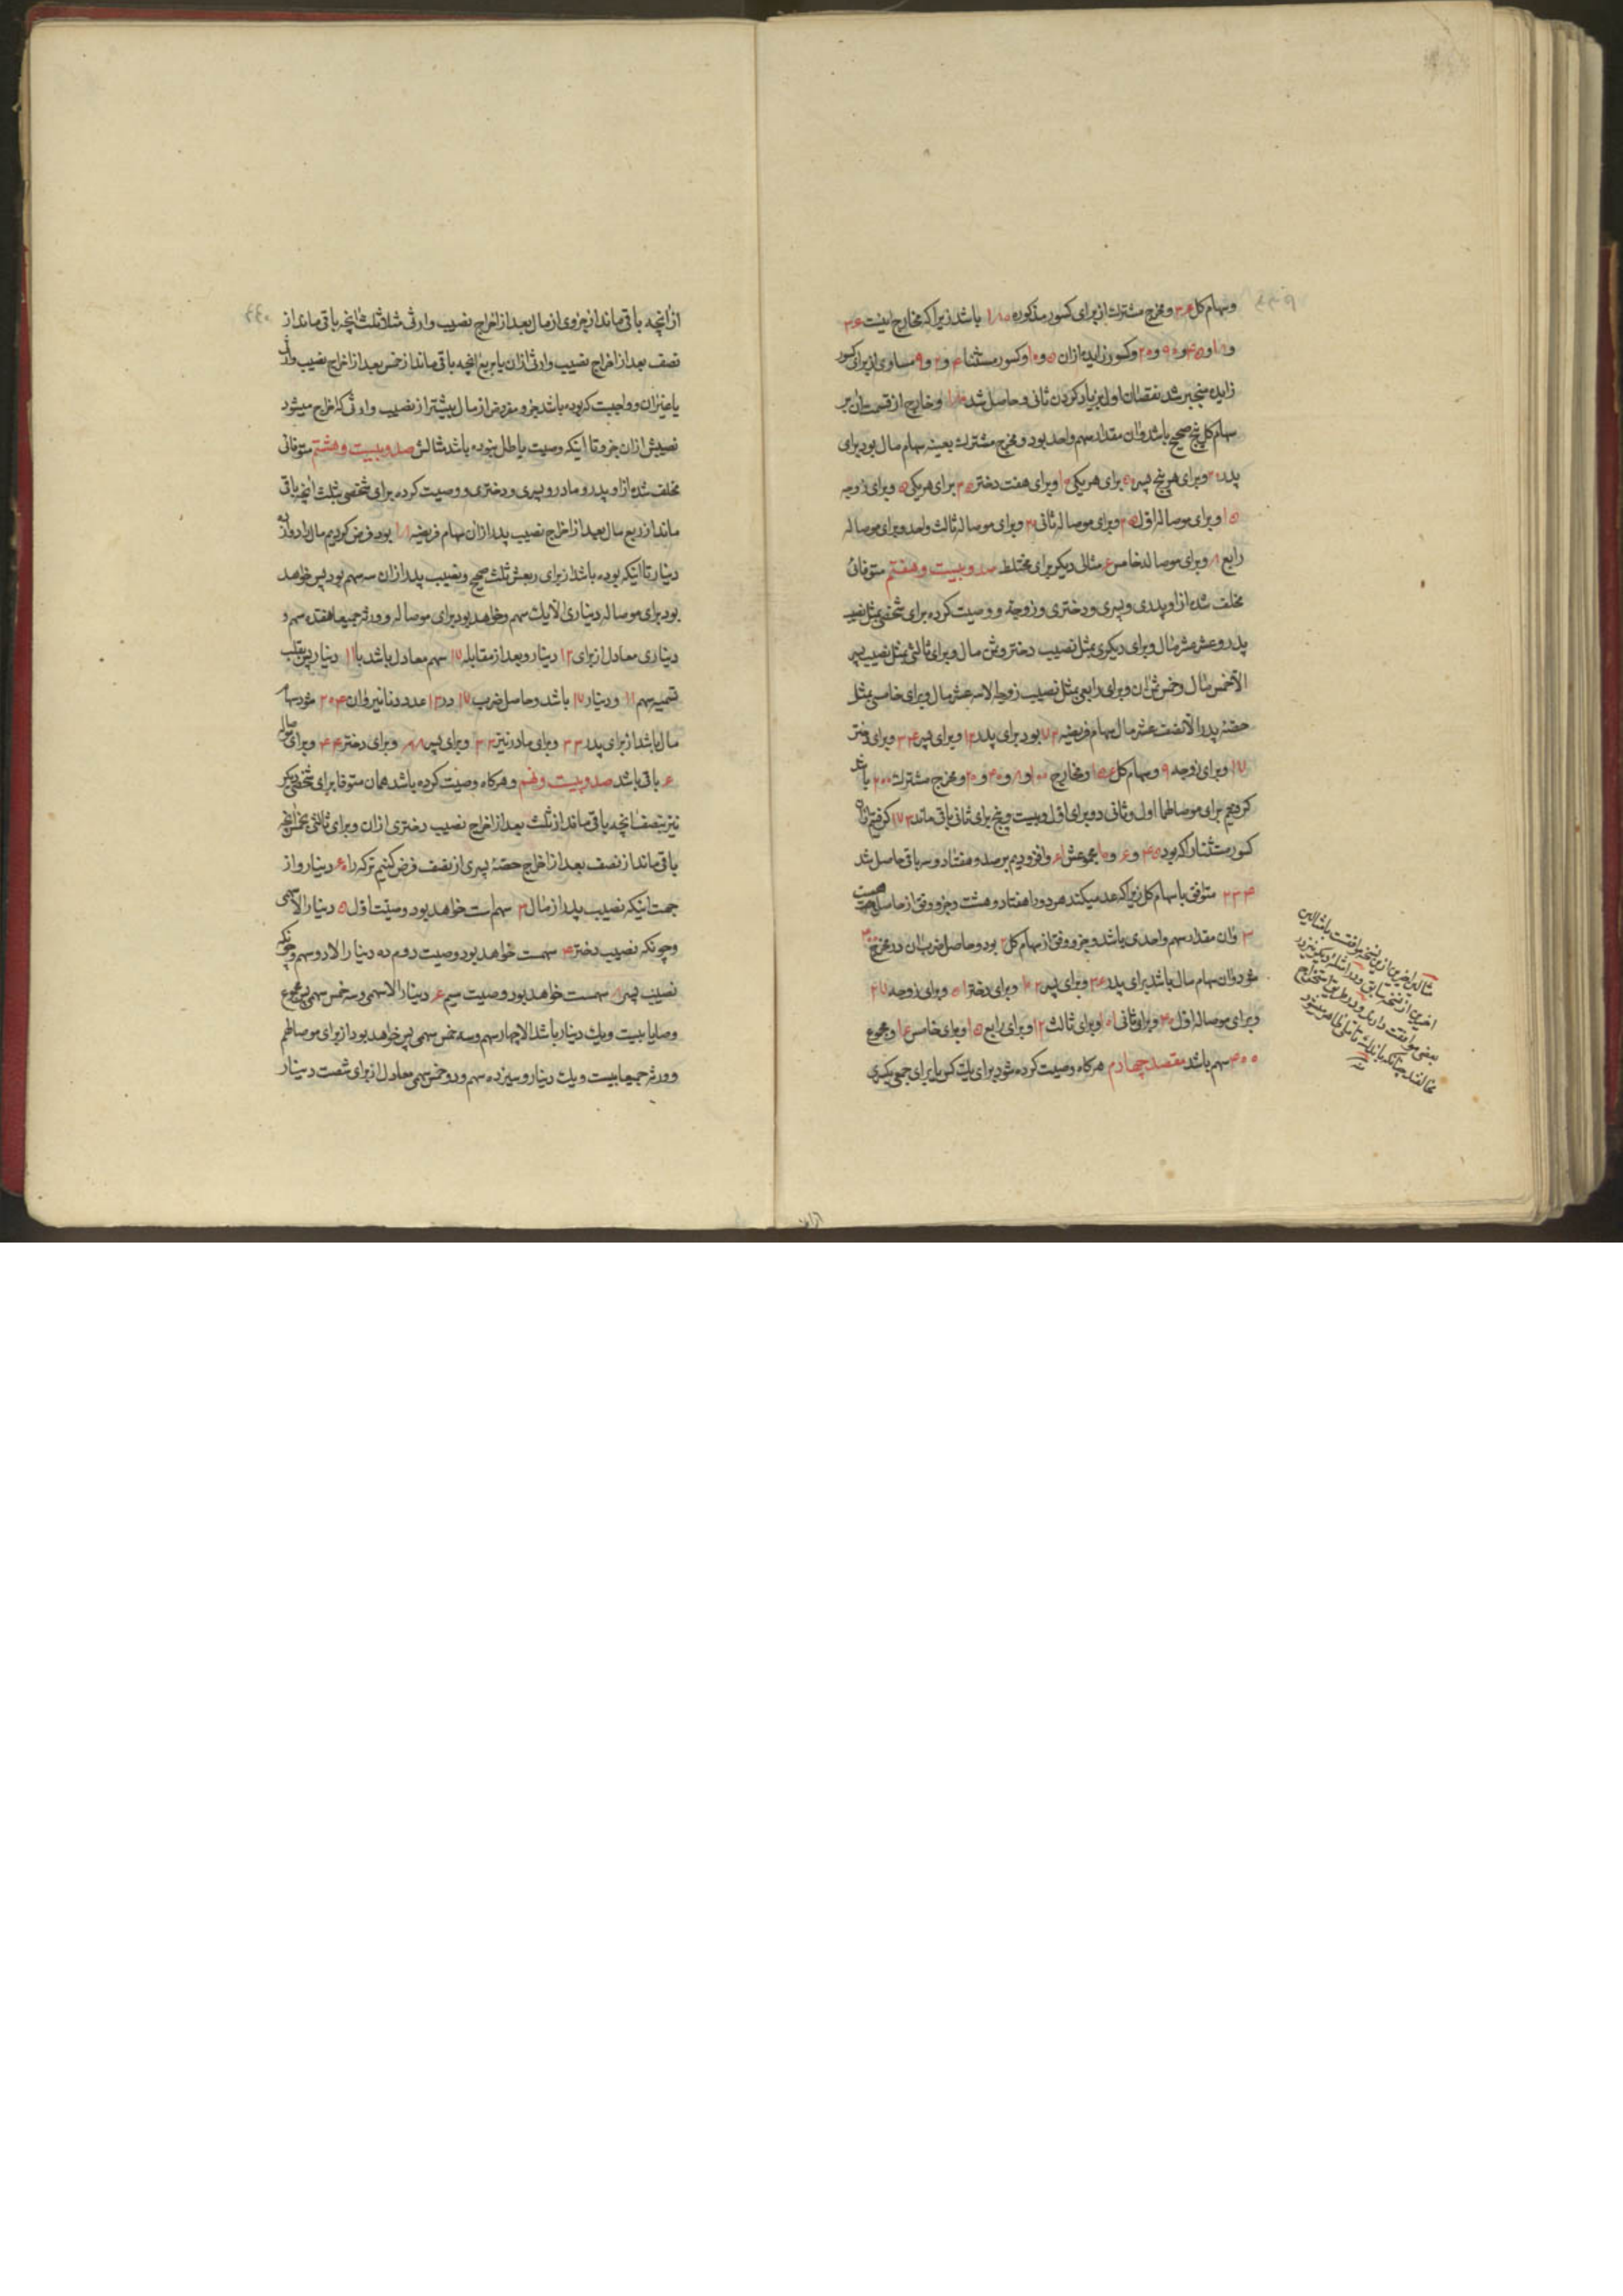 وسهام کل ۳۶ ومخرج مشترک از برای کسور مذکوره ۱۸۰ باشد زیرا که مخارج اینست ۳۶
زایده منجبر شد نقصان اول بزیاد کردن ثانی وحاصل شد ۱۸۰ وخارج از قسمت ان بر
سهام کل پنج صحیح باشد وان مقدار سهم واحد بود ومخرج مشترک بعینه سهام مال بود برای
پدر ۳۰ وبرای هر پنج پسر ۵۰ برای هر یکی ۱۰ وبرای هفت دختر ۳۵ برای هر یکی ۵ وبرای زوجه
۱۵ وبرای موصا له اول ۲۵ وبرای موصا له ثانی وبرای موصا له ثالث واحد وبرای موصا له
رابع ۸ وبرای موصا له خامس ۶ مثالی دیگر برای مختلط صد وبیست وهفتم متوفائی
مخلف شده از او پدری وپسری ودختری وزوجة ووصیت کرده برای شخصی بمثل نصیب
پدر وعشر عشر مال وبرای دیگری بمثل نصیب دختر وثمن مال وبرای ثالثی بمثل نصیب پسر
الا خمس مال وخمس ثمن ان وبرای رابعی بمثل نصیب زوجه الا سه عشر مال وبرای خامسی بمثل
حصهٔ پدر الا نصف عشر مال سهام فریضه ۷۲ بود برای پدر ۱۲ وبرای پسر ۳۴ وبرای دختر
۱۷ وبرای زوجه ۹ وسهام کل ۱۵۶ ومخارج ۱۰۰ و ۸ و ۴۰ و ۲۰ ومخرج مشترک ۲۰۰ باشد
کردیم برای موصا لهما اول وثانی دو برای اول وبیست وپنج برای ثانی باقی ماند ۱۷۳ گرفتیم ازان
کسور مستثنا را که بود ۴۵ و ۶۰ و ۱۰ وافزودیم بر صد وهفتاد وسه باقی حاصل شد
متوافق با سهام کل زیرا که عد میکند هر دو را هفتاد وهشت وجزو وفق از حاصل
۳ وان مقدار سهم واحدی باشد وجزو وفق از سهام کل ۲ بود وحاصل ضرب ان در مخرج ۴۰۰
شود وان سهام مال باشد برای پدر ۳۶ وبرای پسر ۱۰۲ وبرای دختر ۵۱ وبرای زوجه ۲۷
وبرای موصا له اول ۴۰ وبرای ثانی ۱۰۱ وبرای ثالث ۱۲ وبرای رابع ۱۵ وبرای خامس ۱۶ ومجموع
۴۰۰ سهم باشد مقصد چهارم هرگاه وصیت کرده شود برای یک کس یا برای جمعی بکسری
از انچه باقی ماند از جزوی از مال بعد از اخراج نصیب وارثی مثلا ثلث انچه باقی ماند از
نصف بعد از اخراج نصیب وارثی ازان یا بربع انچه باقی ماند از خمس بعد از اخراج نصیب وارثی
یا غیر ان وواجبست که بوده باشد جزو مفروض از مال بیشتر از نصیب وارثی که اخراج میشود
نصیبش ازان جزو تا اینکه وصیت باطل نبوده باشد مثالش صد وبیست وهشتم متوفائی
مخلف شده از او پدر ومادر وپسری ودختری ووصیت کرده برای شخصی بثلث انچه باقی
ماند از ربع مال بعد از اخراج نصیب پدر ازان سهام فریضه ۱۸ بود فرض کردیم مال را دوازده
دینار تا اینکه بوده باشد از برای ربعش ثلث صحیح ونصیب پدر ازان سه سهم بود پس خواهد
بود برای موصا له دیناری الا یک سهم وخواهد بود برای موصا له وورثه جمیعا هفده سهم و
دیناری معادل از برای ۱۲ دینار وبعد از مقابله ۱۷ سهم معادل باشد با ۱۱ دینار پس بقلب
تسمیه سهم ۱۱ ودینار ۱۷ باشد وحاصل ضرب ۱۷ در ۱۲ عدد دنانیر وان ۲۰۴ شود سهام
مال باشد از برای پدر ۳۳ وبرای مادر نیز ۳۳ وبرای پسر ۸۸ وبرای دختر ۴۴ وبرای موصا له
۶ باقی باشد صد وبیست ونهم وهرگاه وصیت کرده باشد همان متوفا برای شخصی دیگر
نیز بنصف انچه باقی ماند از ثلث بعد از اخراج نصیب دختری ازان وبرای ثالثی بخمس انچه
باقی ماند از نصف بعد از اخراج حصهٔ پسری از نصف فرض کنیم ترکه را ۶۰ دینار واز
جهت اینکه نصیب پدر از مال ۳ سهم است خواهد بود وصیت اول ۵ دینار الا سهمی
وچونکه نصیب دختر ۴ سهمست خواهد بود وصیت دوم ده دینار الا دو سهم وچونکه
نصیب پسر ۸ سهمست خواهد بود وصیت سیم ۶ دینار الا سهمی وسه خمس سهمی پس مجموع
وصایا بیست ویک دینار باشد الا چهار سهم وسه خمس سهمی پس خواهد بود از برای موصا لهم
وورثه جمیعا بیست ویک دینار وسیزده سهم ودو خمس سهمی معادل از برای شصت دینار